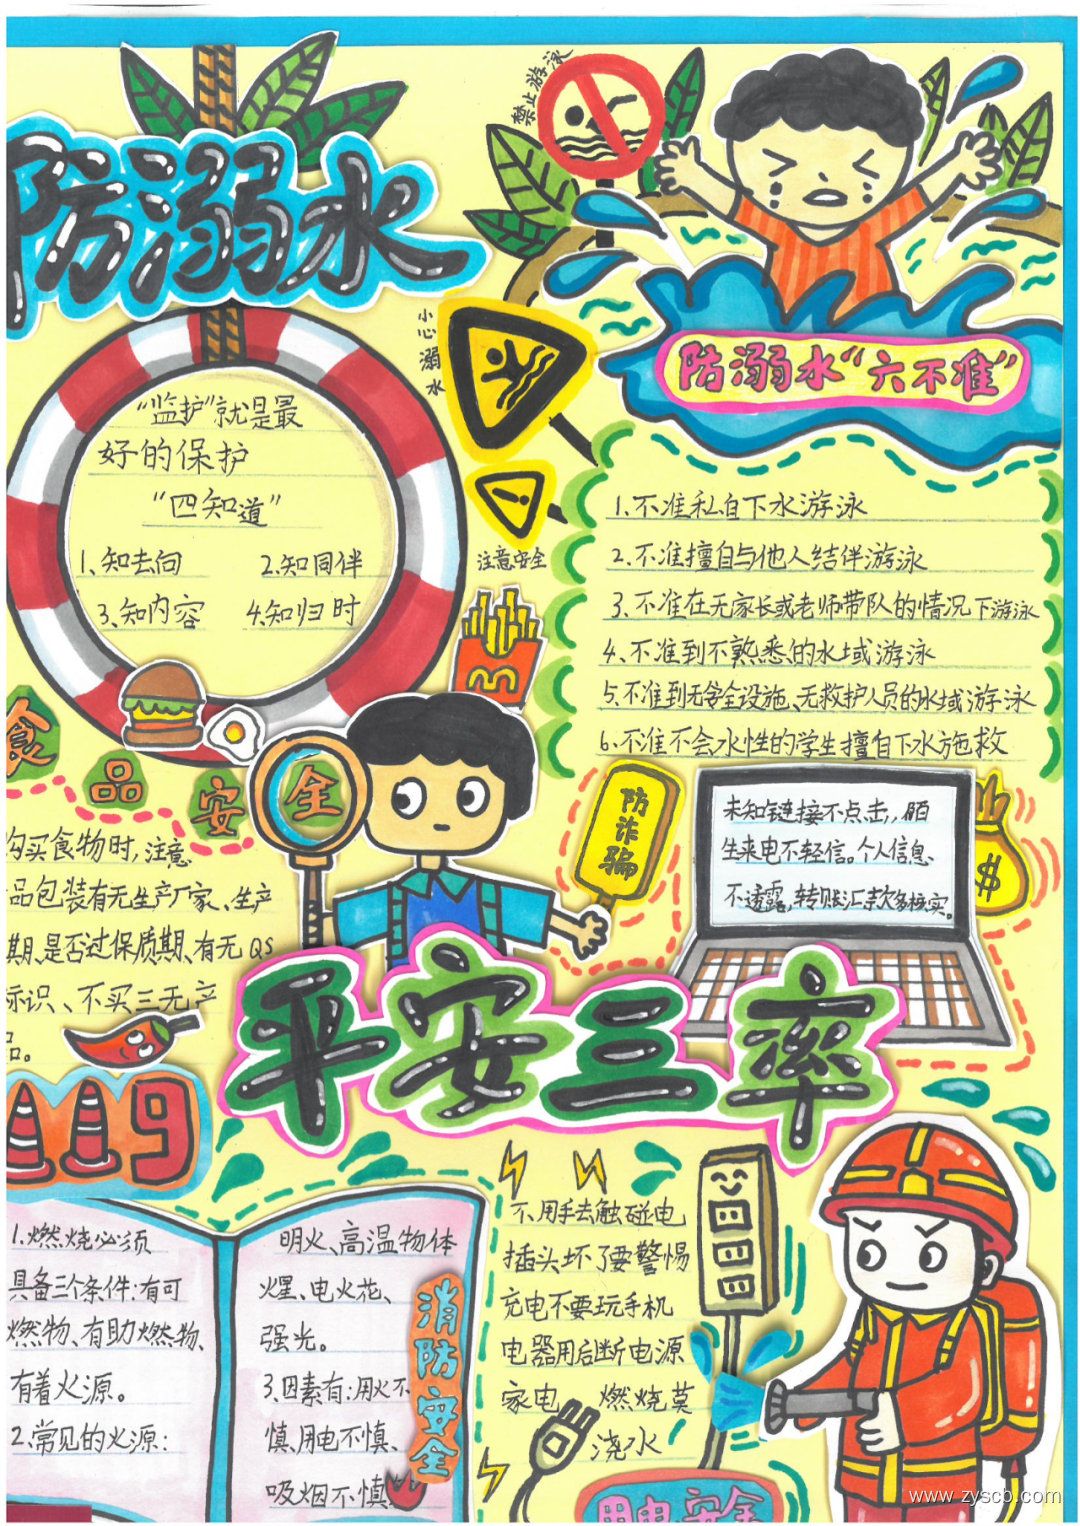 禁止游泳
防溺水
小心溺水
防溺水“六不准”
“监护”就是最
好的保护
“四知道”
1、知去向 2.知同伴
3、知内容 4.知归时
注意安全
1.不准私自下水游泳
2.不准擅自与他人结伴游泳
3、不准在无家长或老师带队的情况下游泳
4、不准到不熟悉的水域游泳
5、不准到无安全设施、无救护人员的水域游泳
6、不准不会水性的学生擅自下水施救
食品安全
购买食物时,注意
品包装有无生产厂家、生产
期、是否过保质期、有无QS
标识、不买三无产
品。
防诈骗
未知链接不点击,陌
生来电不轻信。个人信息
不透露,转账汇款多核实。
$
平安三率
119
1.燃烧必须
具备三个条件:有可
燃物、有助燃物、
有着火源。
2.常见的火源:
明火、高温物体
火星、电火花、
强光。
3.因素有:用火不
慎、用电不慎、
吸烟不慎
消防安全
不用手去触碰电
插头坏了要警惕
充电不要玩手机
电器用后断电源
家电 燃烧莫
浇水
用电安全
www.zyscb.com